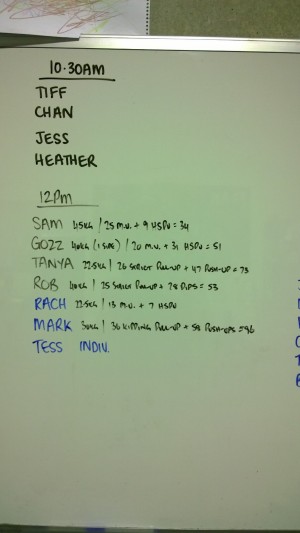 10.30AM
TIFF
CHAN
JESS
HEATHER
12PM
SAM 45KG / 25 M.U. + 9 HSPU = 34
GOZZ 40KG (1 SIDE) / 20 M.U. + 31 HSPU = 51
TANYA 22.5KG / 26 STRICT PULL-UP + 47 PUSH-UP = 73
ROB 40KG / 25 STRICT PULL-UP + 28 DIPS = 53
RACH 22.5KG / 13 M.U. + 7 HSPU
MARK 30KG / 36 KIPPING PULL-UP + 58 PUSH-UPS = 96
TESS INDIV.